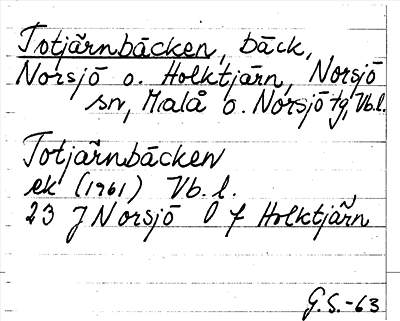 Totjärnbäcken, bäck,
Norsjö o. Holktjärn, Norsjö
sn, Malå o. Norsjö tg, Vb.l.
Totjärnbäcken
ek (1961) Vb. l.
23 J Norsjö 0 f Holktjärn
G.S.-63